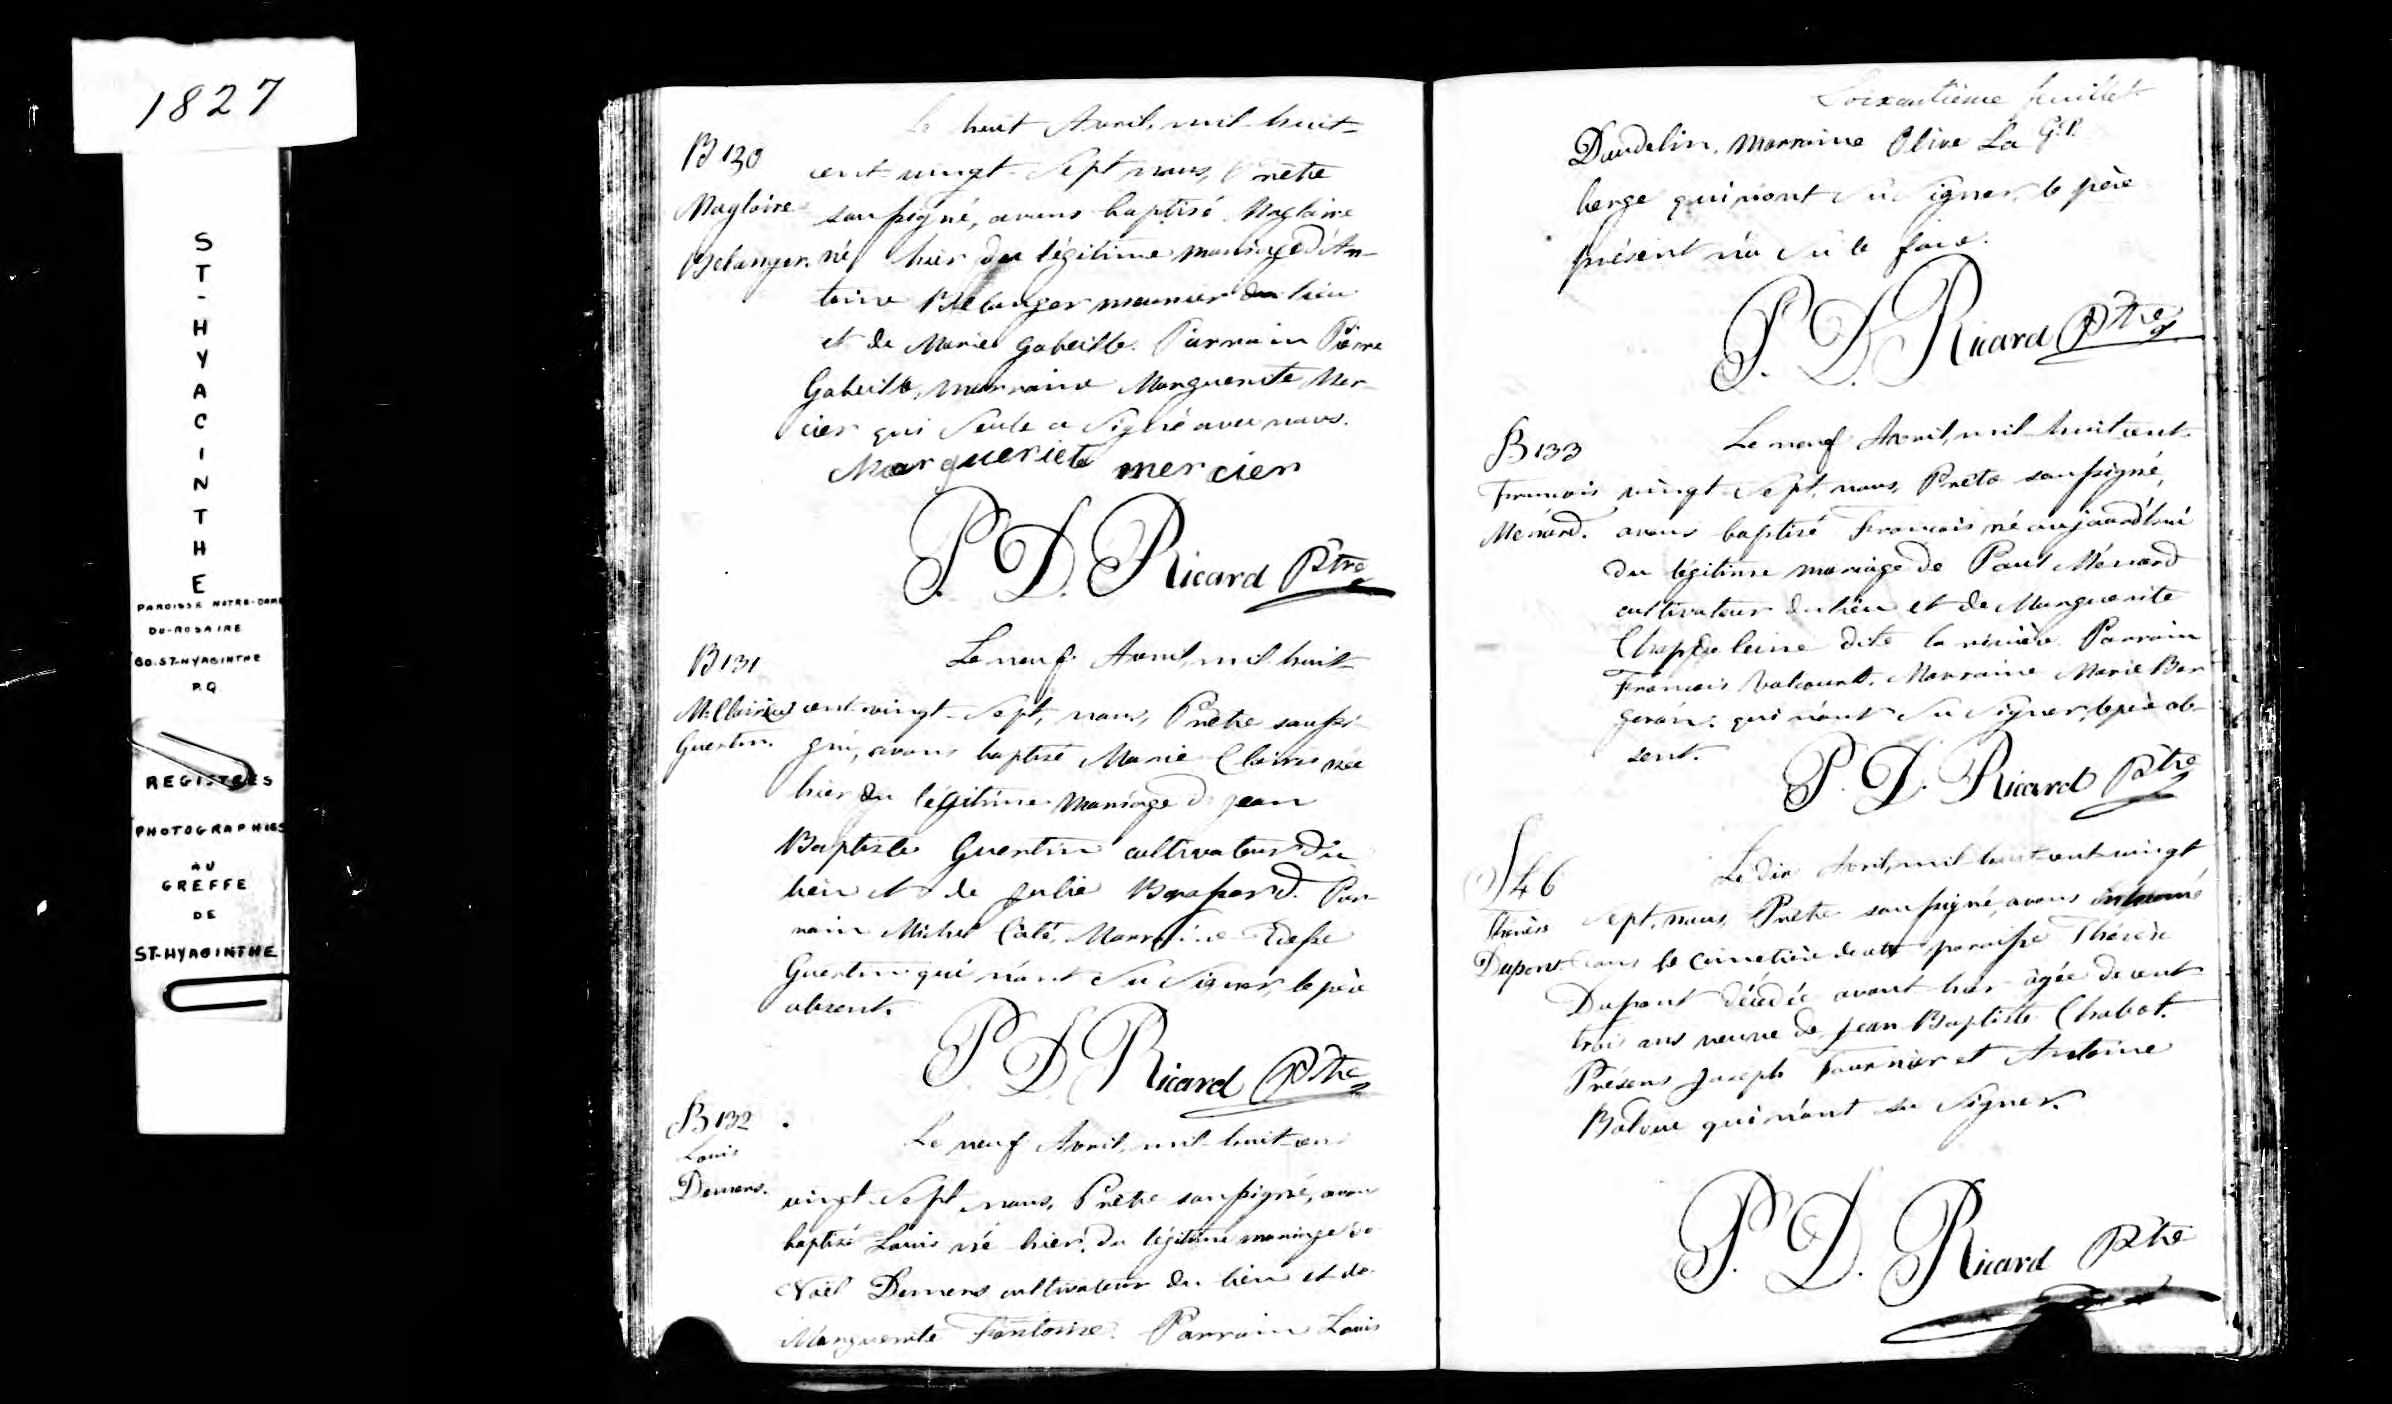 1827
ST-HYACINTHE
PAROISSE NOTRE-DAME
DU-ROSAIRE
CO.ST-HYACINTHE
P.Q.
REGISTRES
PHOTOGRAPHIES
AU
GREFFE
DE
ST-HYACINTHE
B 130
Magloire
Belanger.
Le huit Avril, mil huit-
cent-vingt-sept, nous, Prêtre
soussigné, avons baptisé Magloire
né hier du légitime mariage d'An-
toine Bélanger meunier du lieu
et de Marie Gabeille. Parrain Pierre
Gabeille, marraine Marguerite Mer-
cier qui seule a signé avec nous.
Margueriete mercier
P. D. Ricard Ptre
B 131
M. Claire
Guertin.
Le neuf Avril, mil huit-
cent-vingt-sept, nous, Prêtre soussi-
gné, avons baptisé Marie Claire née
hier du légitime mariage de Jean
Baptiste Guertin cultivateur du
lieu et de Julie. Par-
rain Michel Coté, Marraine
Guertin qui n'ont su signer, le père
absent.
P. D. Ricard Ptre
B 132
Louis
Demers.
Le neuf Avril, mil huit-cent
vingt-sept, nous, Prêtre soussigné, avons
baptisé Louis né hier, du légitime mariage de
Noël Demers cultivateur du lieu et de
Marguerite Fontaine. Parrain Louis
Soixantième feuillet
G. P.
Daudelin, Marraine Olive La
berge qui n'ont su signer, le père
présent n'a su le faire.
P. D. Ricard Ptre
B 133
François
Ménard.
Le neuf Avril, mil huit cent-
vingt-sept, nous, Prêtre soussigné,
avons baptisé François né aujourd'hui
du légitime mariage de Paul Ménard
cultivateur du lieu et de Marguerite
Chapdeleine dite la rivière. Parrain
François Valcourt. Marraine Marie Ber
geron qui n'ont su signer, le père ab-
sent.
P. D. Ricard Ptre
S 46
Thérèse
Dupont
Le dix Avril, mil huit-cent-vingt
sept, nous, Prêtre soussigné, avons inhumé
dans le cimetière de cette paroisse Thérèse
Dupont décédée avant-hier âgée de cent
trois ans veuve de Jean Baptiste Chabot.
Présens Joseph Fournier et Antoine
qui n'ont su signer.
P. D. Ricard Ptre